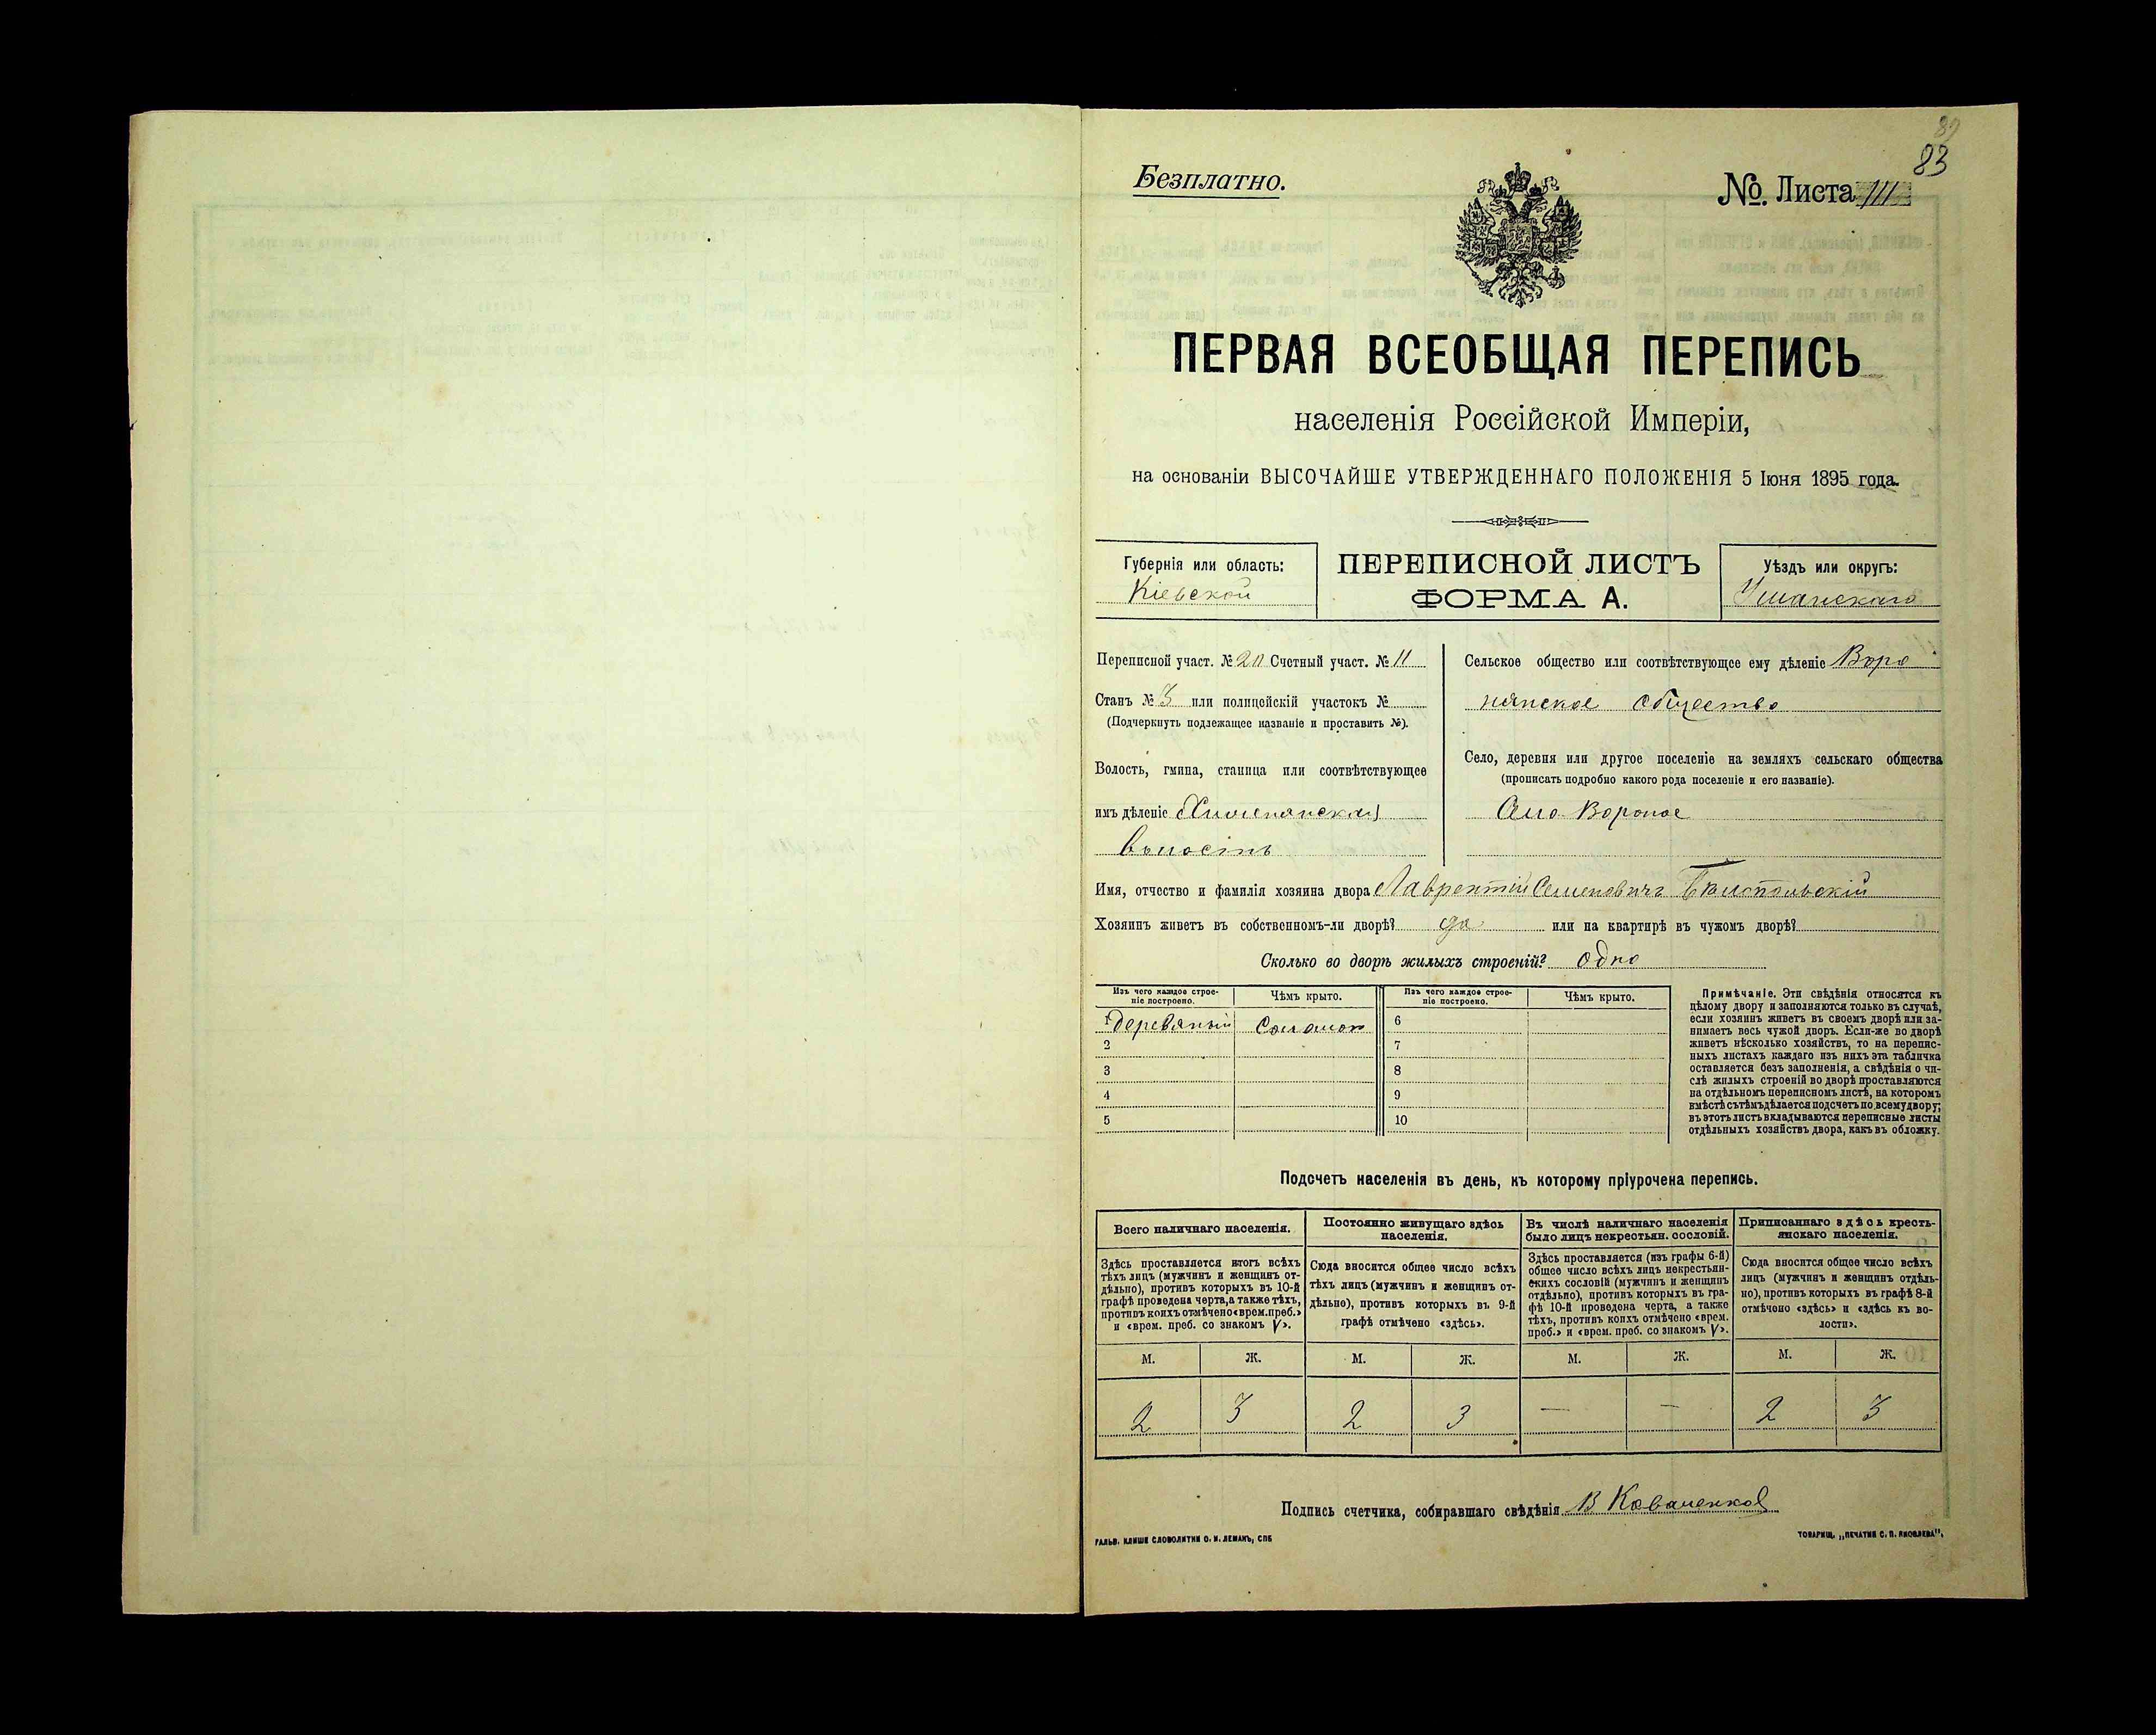 83
Безплатно.
№. Листа 111
ПЕРВАЯ ВСЕОБЩАЯ ПЕРЕПИСЬ
населенія Россійской Имперіи,
на основаніи ВЫСОЧАЙШЕ УТВЕРЖДЕННАГО ПОЛОЖЕНІЯ 5 Іюня 1895 года.
Губернія или область:
Кіевской
ПЕРЕПИСНОЙ ЛИСТЪ
ФОРМА А.
Уѣздъ или округъ:
Уманскаго
Переписной участ. № 20 Счетный участ. № 11
Станъ № 3 или полицейскій участокъ №
(Подчеркнуть подлежащее названіе и проставить №).
Волость, гмина, станица или соотвѣтствующее
имъ дѣленіе
волость
Сельское общество или соотвѣтствующее ему дѣленіе Воро
нянское общество
Село, деревня или другое поселеніе на земляхъ сельскаго общества
(прописать подробно какого рода поселеніе и его названіе).
Вороное
Имя, отчество и фамилія хозяина двора Лаврентій Семеновичъ
Хозяинъ живетъ въ собственномъ-ли дворѣ? да или на квартирѣ въ чужомъ дворѣ?
Сколько во дворѣ жилыхъ строеній? одно
Изъ чего каждое строе-
ніе построено.
Чѣмъ крыто.
Изъ чего каждое строе-
ніе построено.
Чѣмъ крыто.
1 деревяный Соломон 6
2 7
3 8
4 9
5 10
Примѣчаніе. Эти свѣдѣнія относятся къ
цѣлому двору и заполняются только въ случаѣ,
если хозяинъ живетъ въ своемъ дворѣ или за-
нимаетъ весь чужой дворъ. Если-же во дворѣ
живетъ нѣсколько хозяйствъ, то на перепис-
ныхъ листахъ каждаго изъ нихъ эта табличка
оставляется безъ заполненія, а свѣдѣнія о чи-
слѣ жилыхъ строеній во дворѣ проставляются
на отдѣльномъ переписномъ листѣ, на которомъ
вмѣстѣ съ тѣмъ дѣлается подсчетъ по всему двору;
въ этотъ листъ вкладываются переписные листы
отдѣльныхъ хозяйствъ двора, какъ въ обложку.
Подсчетъ населенія въ день, къ которому пріурочена перепись.
Всего наличнаго населенія.
Здѣсь проставляется итогъ всѣхъ
тѣхъ лицъ (мужчинъ и женщинъ от-
дѣльно), противъ которыхъ въ 10-й
графѣ проведена черта, а также тѣхъ,
противъ коихъ отмѣчено «врем. преб.»
и «врем. преб. со знакомъ V».
Постоянно живущаго здѣсь
населенія.
Сюда вносится общее число всѣхъ
тѣхъ лицъ (мужчинъ и женщинъ от-
дѣльно), противъ которыхъ въ 9-й
графѣ отмѣчено «здѣсь».
Въ числѣ наличнаго населенія
было лицъ некрестьян. сословій.
Здѣсь проставляется (изъ графы 6-й)
общее число всѣхъ лицъ некрестьян-
скихъ сословій (мужчинъ и женщинъ
отдѣльно), противъ которыхъ въ гра-
фѣ 10-й проведена черта, а также
тѣхъ, противъ коихъ отмѣчено «врем.
преб.» и «врем. преб. со знакомъ V».
Приписаннаго здѣсь кресть-
янскаго населенія.
Сюда вносится общее число всѣхъ
лицъ (мужчинъ и женщинъ отдѣль-
но), противъ которыхъ въ графѣ 8-й
отмѣчено «здѣсь» и «здѣсь къ во-
лости».
М. Ж. М. Ж. М. Ж. М. Ж.
2 3 2 3 — — 2 3
Подпись счетчика, собиравшаго свѣдѣнія В Коваленков
ГАЛЬВ. КЛИШЕ СЛОВОЛИТНИ О. И. ЛЕМАНЪ, СПБ
ТОВАРИЩ. „ПЕЧАТНЯ С. П. ЯКОВЛЕВА",